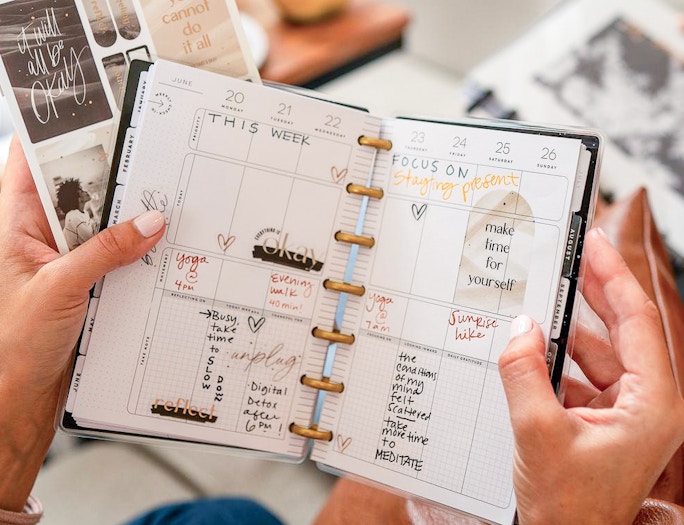 it will
all be
okay
you
cannot
do
it all
JUNE
20
MONDAY
21
TUESDAY
22
WEDNESDAY
THIS WEEK
EVERYTHING IS
okay
Yoga
@
4pm
Evening
walk
40 min!
REFLECTING ON
Busy
take
time
to
SLOW
DOWN
unplug
Digital
Detox
after
6pm!
reflect
TAKE NOTE
TODAY
PRIORITY
JANUARY
FEBRUARY
MARCH
MAY
JUNE
23
THURSDAY
24
FRIDAY
25
SATURDAY
26
SUNDAY
FOCUS ON
Staying present
make
time
for
yourself
Yoga
@
7am
Sunrise
hike
LOOKING INWARD
DAILY GRATITUDE
the
conditions
of my
mind
felt
scattered
take
more time
to
MEDITATE
AUGUST
SEPTEMBER